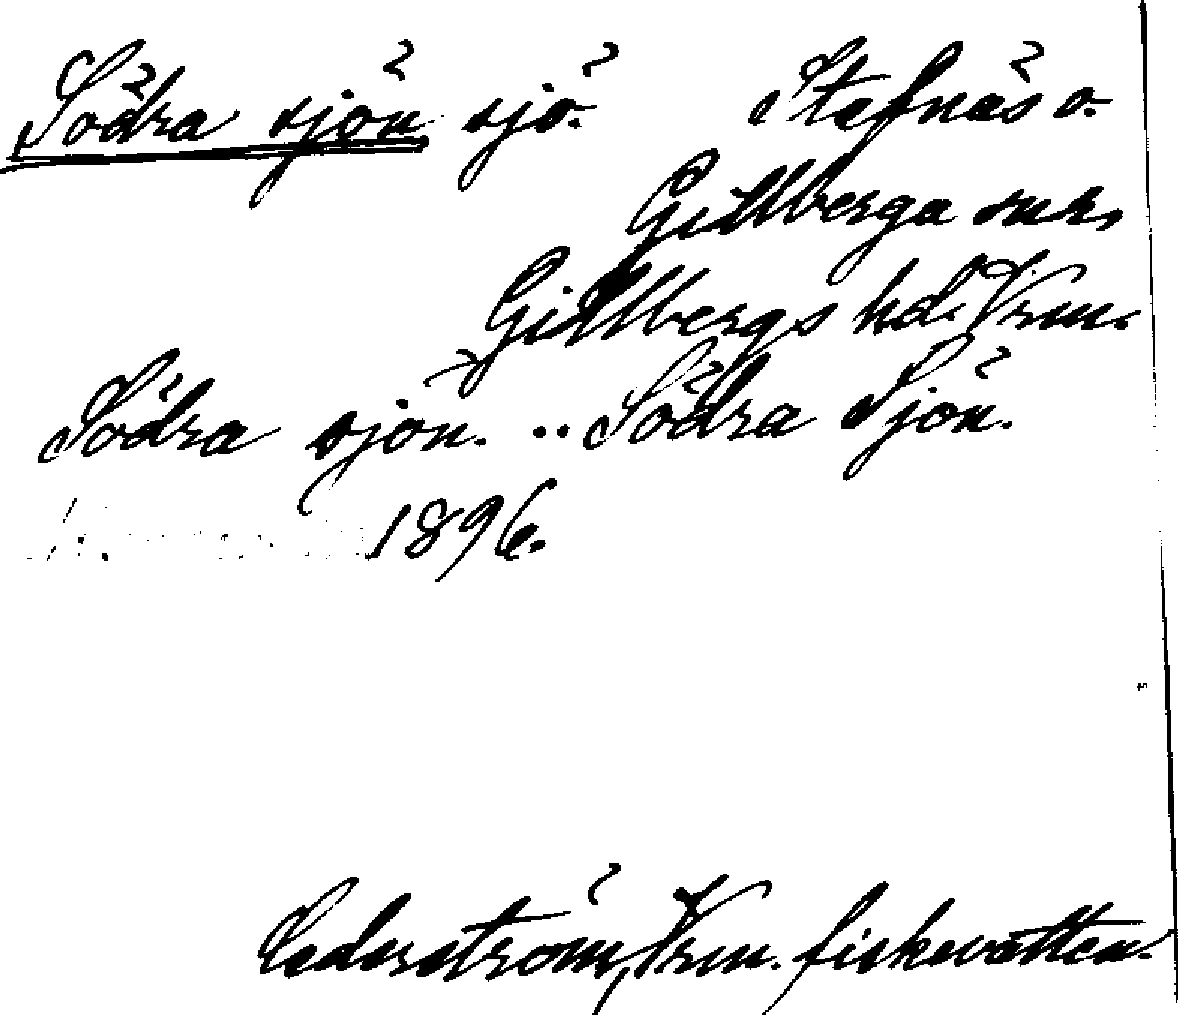 Södra sjön sjö. Stafnäs o.
Gillberga snr,
Gillbergs hd. Vrm.
Södra sjön. .. Södra Sjön.
1896.
Cederström, Vrm. fiskevatten.